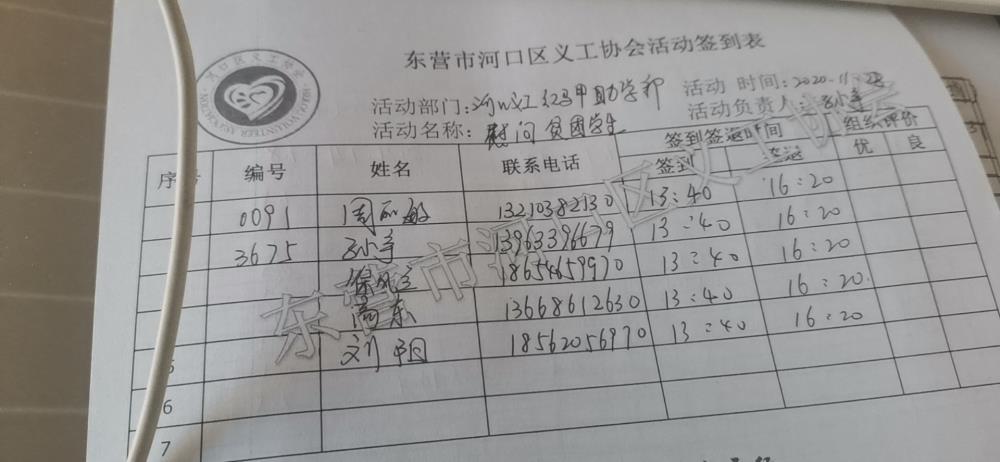 东营市河口区义工协会活动签到表
活动部门: 红马甲助学部 活动时间: 2020.11.28
活动名称: 慰问贫困学生 活动负责人:
序号 编号 姓名 联系电话 签到签返时间 组织评价
签到 签返 优 良
0091 周 敏 13210382130 13:40 16:20
3675 13963396679 13:40 16:20
18654659970 13:40 16:20
东 13668612630 13:40 16:20
5 刘 18562056970 13:40 16:20
6
7
东营市河口区义工协会